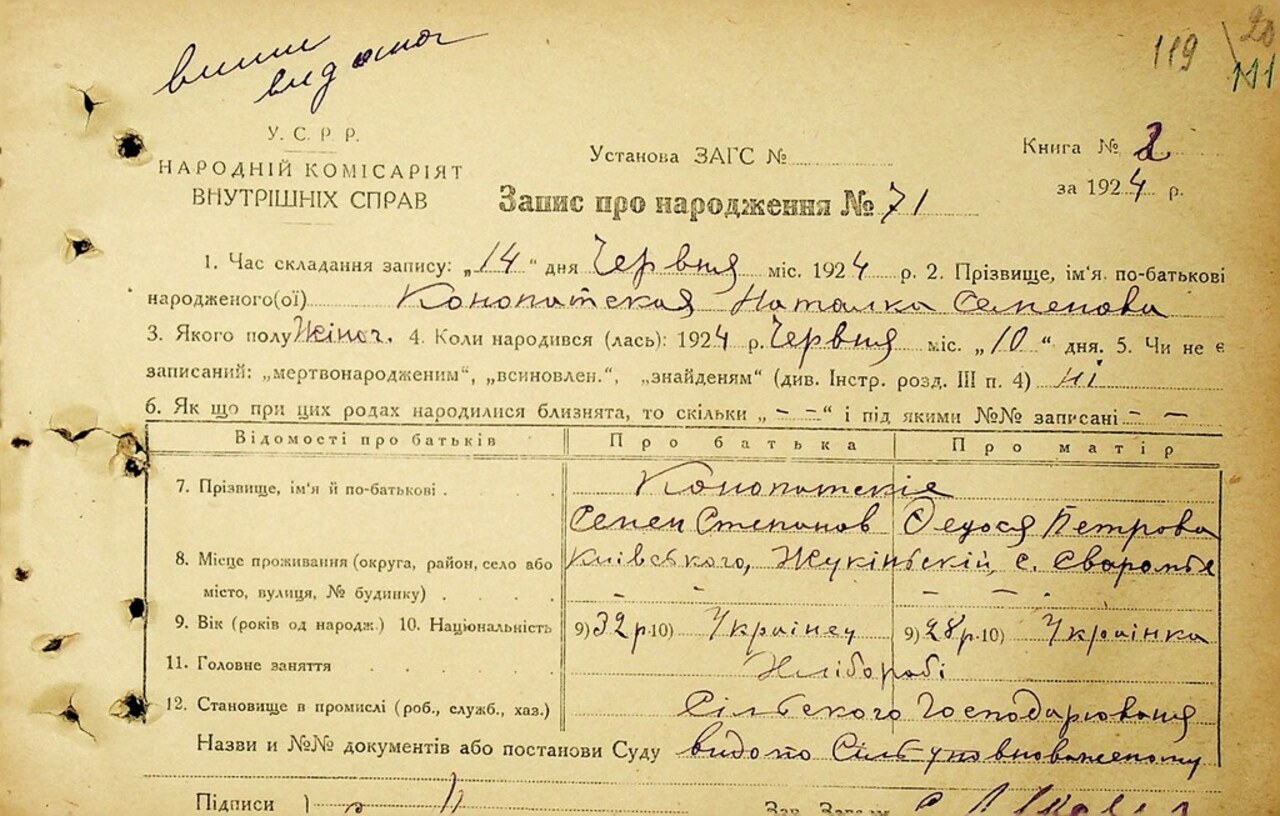 119
20
111
видано
У. С. Р. Р.
НАРОДНІЙ КОМІСАРІЯТ
ВНУТРІШНІХ СПРАВ
Установа ЗАГС №
Книга № 2
за 1924 р.
Запис про народження № 71
1. Час складання запису: „14“ дня Червня міс. 1924 р. 2. Прізвище, ім'я. по-батькові
народженого(ої) Конопатская Наталка Семенова
3. Якого полу Жіноч. 4. Коли народився (лась): 1924 р. Червня міс. „10“ дня. 5. Чи не є
записаний: „мертвонародженим“, „всиновлен.“, „знайденям“ (див. Інстр. розд. III п. 4) ні
6. Як що при цих родах народилися близнята, то скільки „ - - “ і під якими №№ записані - -
Відомості про батьків Про батька Про матір
7. Прізвище, ім'я й по-батькові . Конопатскіе
Семен Степанов Федося Петрова
8. Місце проживання (округа, район, село або Київського, Жукінській, с. Сваромье
місто, вулиця, № будинку) . . . . . - - -
9. Вік (років од народж.) 10. Національність 9) 32 р. 10) Українец 9) 28 р. 10) Українка
11. Головне заняття . . . . Хлібороби
12. Становище в промислі (роб., служб., хаз.) Сільского Господарюваня
Назви и №№ документів або постанови Суду видопо Сільуповноваженому
Підписи